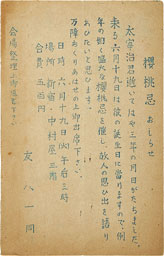 櫻桃忌 おしらせ
太宰治君逝いてはや三年の月日がたちました。
来る六月十九日は彼の誕生日に当りますので、例
年の如く盛大な櫻桃忌を催し、故人の思ひ出を語り
あひたいと思ひます。
万障おくりあはせの上御出席下さい。
日時 六月十九日(火)午后三時
場所 新宿・中村屋三階
会費 三百円
友人一同